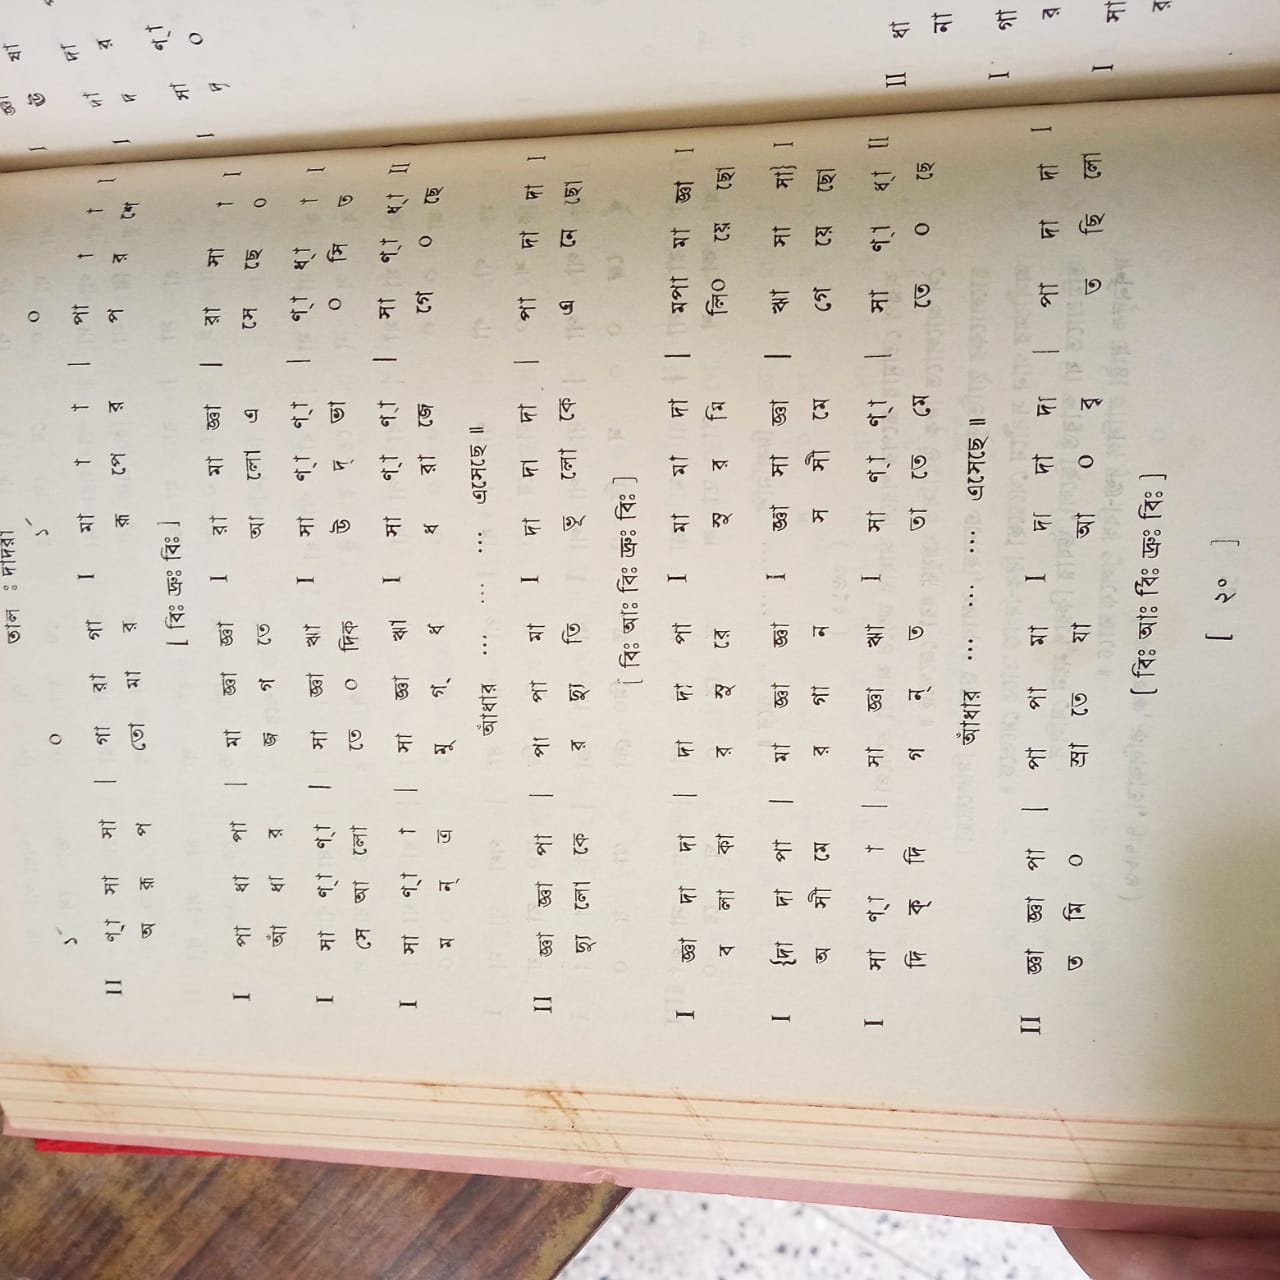 তাল : দাদরা
১´ ০ ১´ ০
II ণ্া সা সা | গা রা গা I মা া া | পা া া I
অ রূ প তো মা র রূ পে র প র শে
[ বিঃ দ্রুঃ বিঃ ]
I পা ধা পা | মা জ্ঞা জ্ঞা I রা মা জ্ঞা | রা সা া I
আঁ ধা র জ গ তে আ লো এ সে ছে ০
I সা ণ্া ণ্া | সা জ্ঞা ঋা I সা ণ্া ণ্া | ণ্া ধ্া া I
সে আ লো তে ০ দিক উ দ্ ভা ০ সি ত
I সা ণ্া া | সা জ্ঞা ঋা I সা ণ্া ণ্া | সা ণ্া ধ্া II
ম ন্ ত্র মু গ্ ধ ধ রা জে গে ০ ছে
আঁধার ... ... ... এসেছে ॥
II জ্ঞা জ্ঞা পা | পা পা মা I দা দা দা | পা দা দা I
দ্যু লো কে র দ্যু তি ভূ লো কে এ নে ছো
[ বিঃ আঃ বিঃ দ্রুঃ বিঃ ]
I জ্ঞা দা দা | দা দা পা I মা মা দা | মপা মা জ্ঞা I
ব লা কা র সু রে সু র মি লি০ য়ে ছো
I {দা দা পা | মা জ্ঞা জ্ঞা I জ্ঞা সা জ্ঞা | ঋা সা সা} I
অ সী মে র গা ন স সী মে গে য়ে ছো
I সা ণ্া া | সা জ্ঞা ঋা I সা ণ্া ণ্া | সা ণ্া ধ্া II
দি ক্ দি গ ন্ ত তা তে মে তে ০ ছে
আঁধার ... ... ... এসেছে ॥
II জ্ঞা জ্ঞা পা | পা পা মা I দা দা দা | পা দা দা I
ত মি ০ স্রা তে যা আ ০ বৃ ত ছি লো
[ বিঃ আঃ বিঃ দ্রুঃ বিঃ ]
[ ২০ ]
II ধা
না
I গা
র
I সা
র